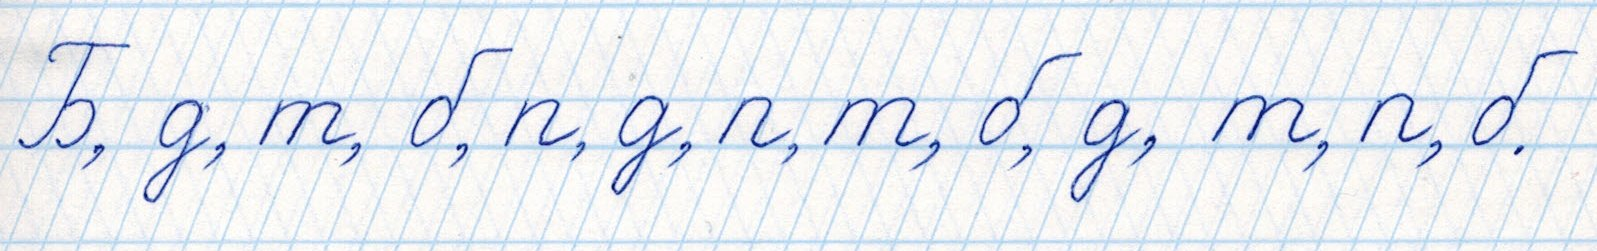 Б, д, т, б, п, д, п, т, б, д, т, п, б.